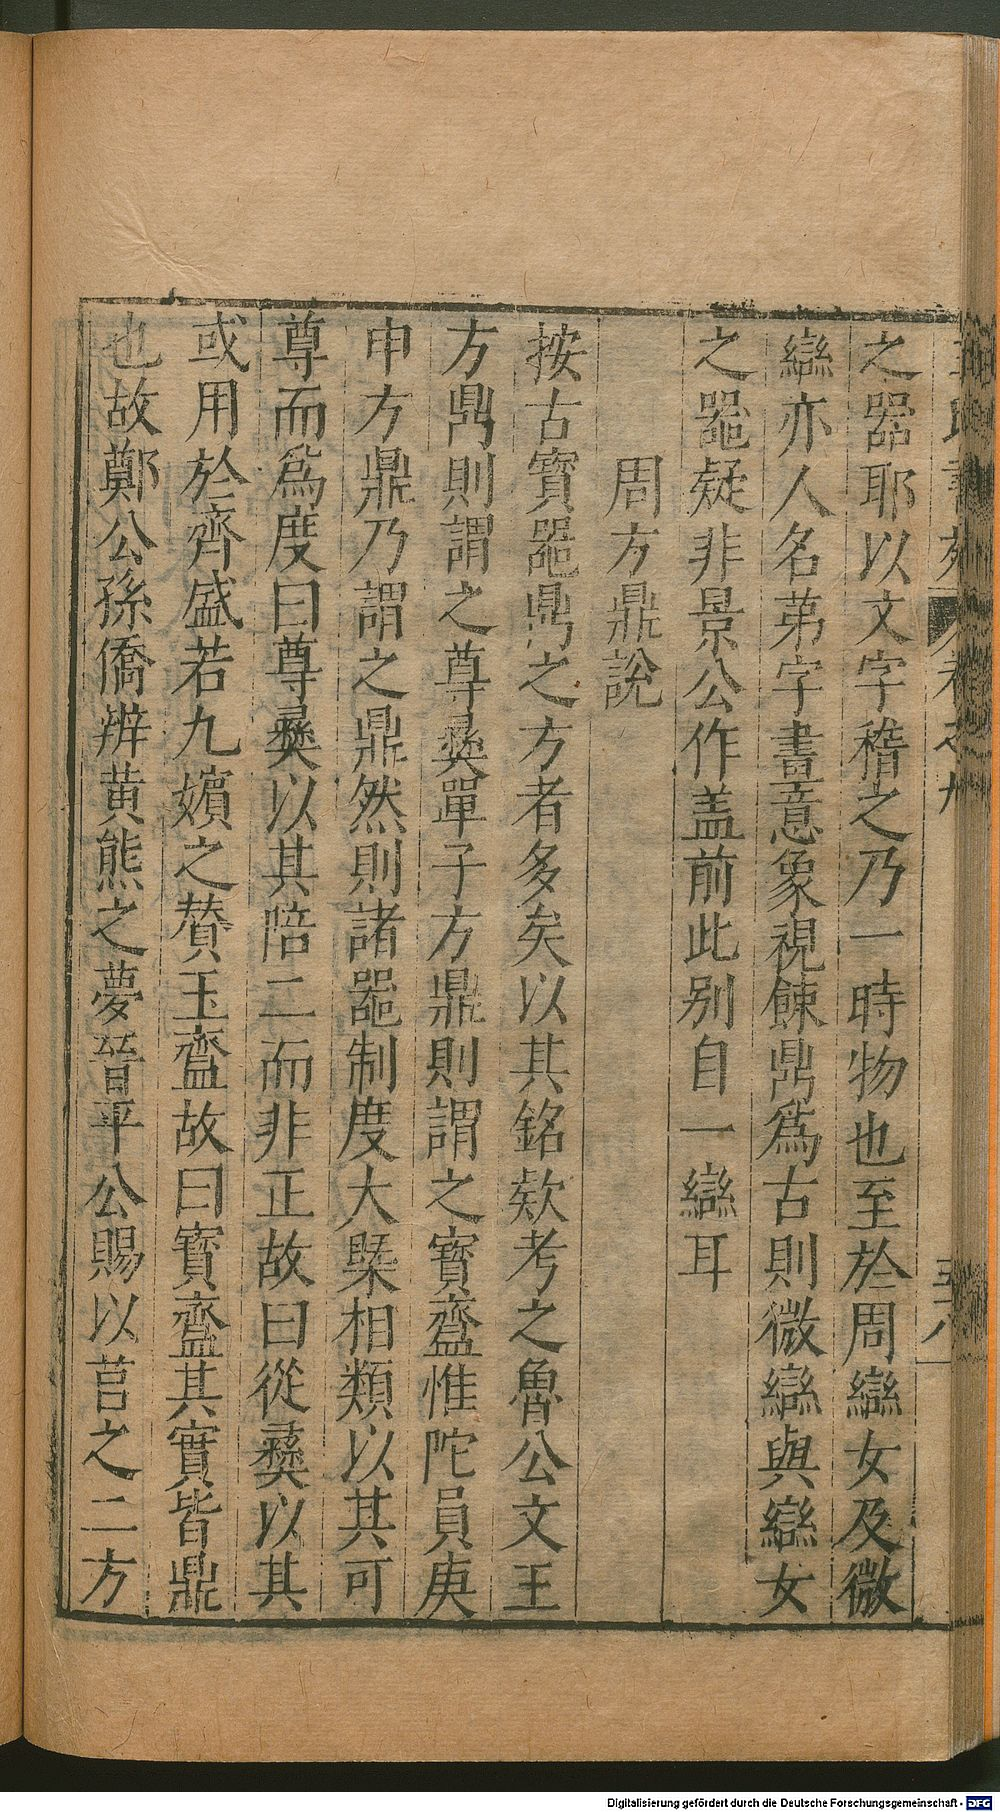 之器耶以文字稽之乃一時物也至於周䜌女及微
䜌亦人名弟字畫意象視餗鼎爲古則微䜌與䜌女
之噐疑非景公作盖前此别自一䜌耳
周方鼎說
按古寳噐鼎之方者多矣以其銘欵考之魯公文王
方鼎則謂之尊彞單子方鼎則謂之寳齍惟陀員庚
申方鼎乃謂之鼎然則諸噐制度大槩相類以其可
尊而爲度曰尊彞以其陪二而非正故曰從彞以其
或用於齊盛若九嬪之賛玉齍故曰寳齍其實皆鼎
也故鄭公孫僑辨黃熊之夢晉平公賜以莒之二方
Digitalisierung gefördert durch die Deutsche Forschungsgemeinschaft - DFG